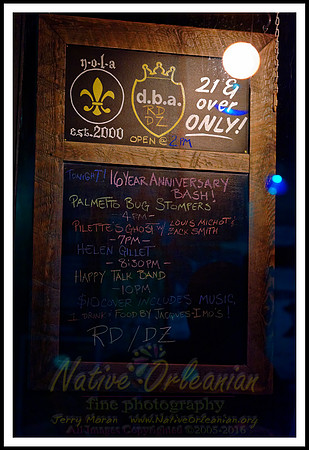 n-o-l-a
est. 2000
d.b.a.
RD
DZ
OPEN @ 2 PM
21 &
over
ONLY!
TONIGHT! 16 YEAR ANNIVERSARY
BASH!
PALMETTO BUG STOMPERS
- 4 PM -
PILETTE'S GHOST W/ LOUIS MICHOT &
ZACK SMITH
- 7PM -
HELEN GILLET
- 8:30PM -
HAPPY TALK BAND
- 10PM
$10 COVER INCLUDES MUSIC,
1 DRINK & FOOD BY JACQUES-IMO'S!
RD/DZ
Native Orleanian
fine photography
Jerry Moran www.NativeOrleanian.org
All Images Copyrighted ©2005-2016